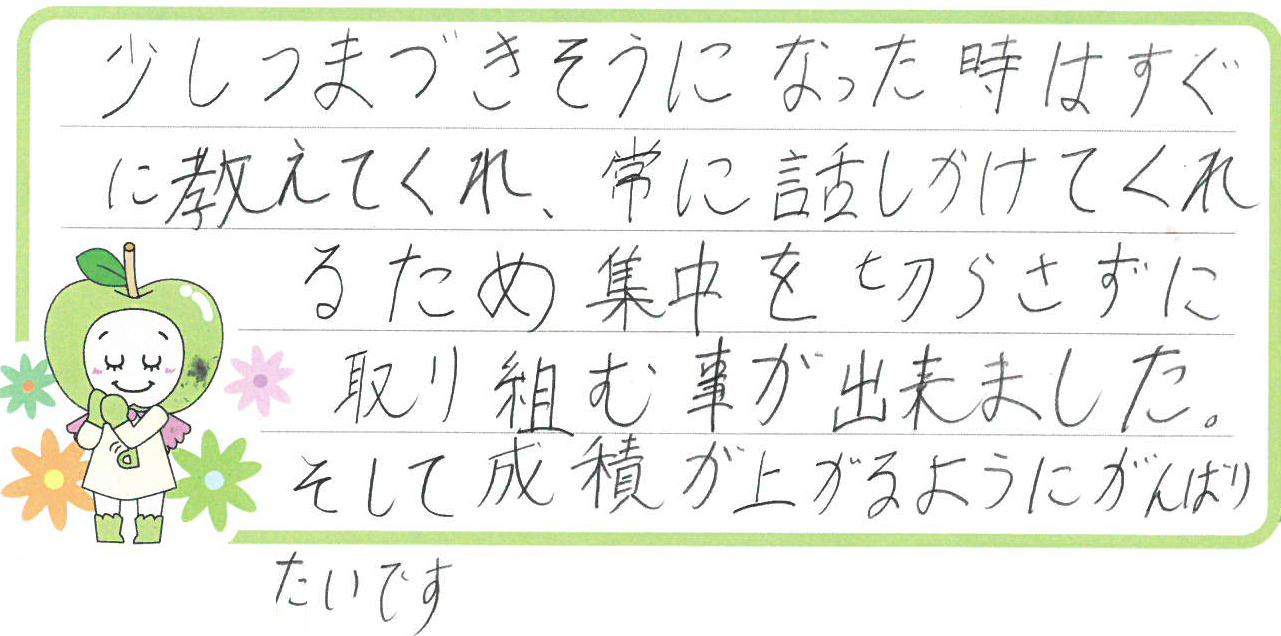 少しつまづきそうになった時はすぐ
に教えてくれ、常に話しかけてくれ
るため集中を切らさずに
取り組む事が出来ました。
そして成積が上がるようにがんばり
たいです